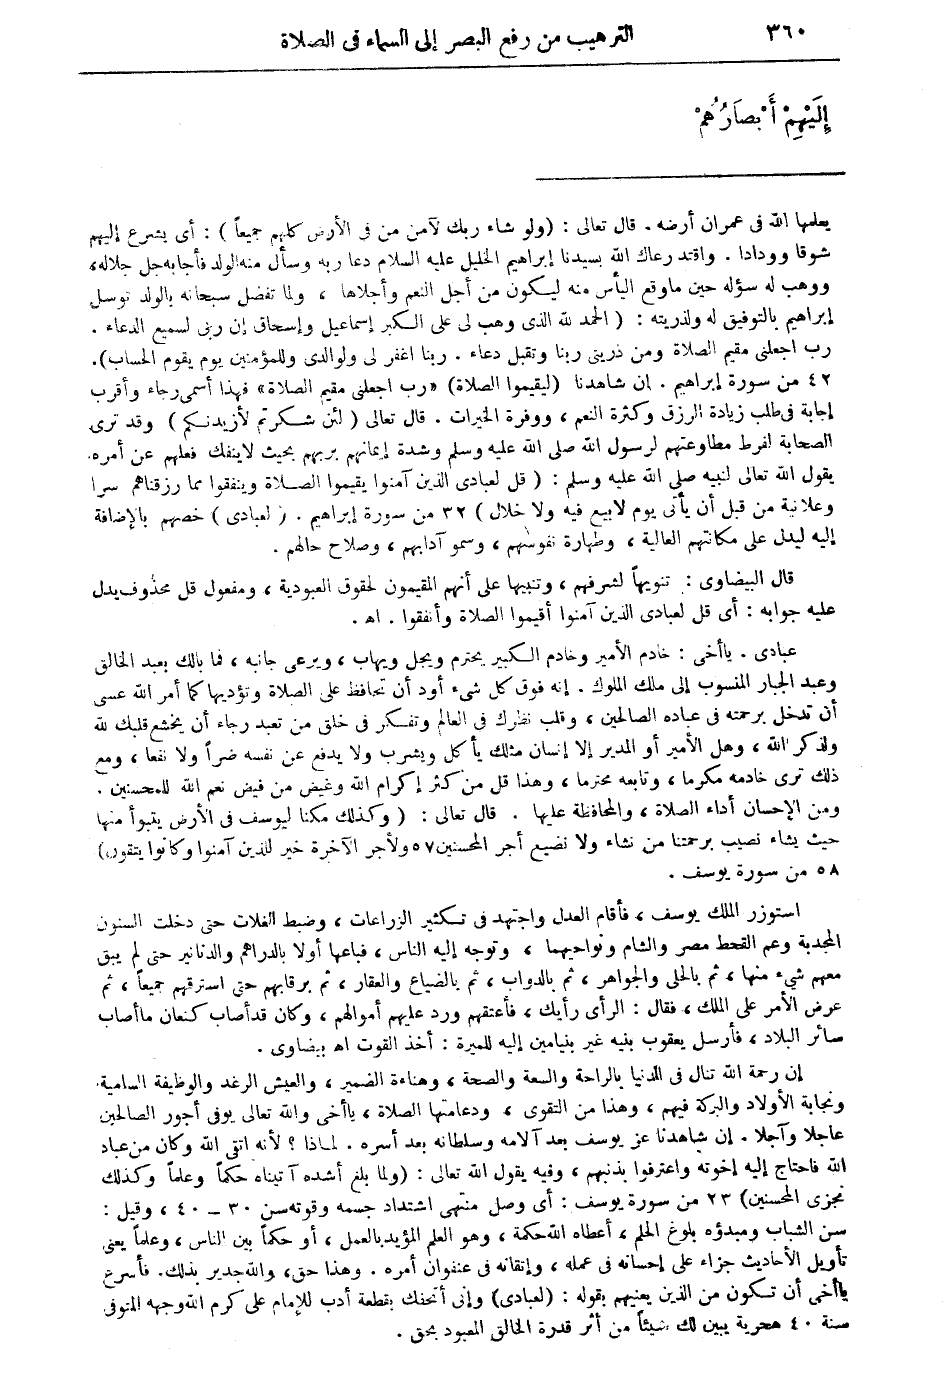 ٣٦٠ الترهيب من رفع البصر إلى السماء فى الصلاة
إِلَيْهِمْ أَبْصَارُهُمْ
يعلمها الله فى عمران أرضه . قال تعالى : (ولو شاء ربك لآمن من فى الأرض كلهم جميعاً ) : أى يشرع إليهم
شوقا وودادا . واقتد رعاك الله بسيدنا إبراهيم الخليل عليه السلام دعا ربه وسأل منه الولد فأجابه جل جلاله،
ووهب له سؤله حين ماوقع اليأس منه ليكون من أجل النعم وأجلاها ، ولما تفضل سبحانه بالولد توسل
إبراهيم بالتوفيق له ولذريته : ( الحمد لله الذى وهب لى على الكبر إسماعيل وإسحاق إن ربى لسميع الدعاء .
رب اجعلنى مقيم الصلاة ومن ذريتى ربنا وتقبل دعاء . ربنا اغفر لى ولوالدى وللمؤمنين يوم يقوم الحساب).
٤٢ من سورة إبراهيم . إن شاهدنا (ليقيموا الصلاة) «رب اجعلنى مقيم الصلاة» فهذا أسمى رجاء وأقرب
إجابة فى طلب زيادة الرزق وكثرة النعم ، ووفرة الخيرات . قال تعالى ( لئن شكرتم لأزيدنكم ) وقد ترى
الصحابة لفرط مطاوعتهم لرسول الله صلى الله عليه وسلم وشدة إيمانهم بربهم بحيث لاينفك فعلهم عن أمره.
يقول الله تعالى لنبيه صلى الله عليه وسلم : ( قل لعبادى الذين آمنوا يقيموا الصلاة وينفقوا مما رزقناهم سرا
وعلانية من قبل أن يأتى يوم لابيع فيه ولا خلال ) ٣٢ من سورة إبراهيم . ( لعبادى ) خصهم بالإضافة
إليه ليدل على مكانتهم العالية ، وطهارة نفوسهم ، وسمو آدابهم ، وصلاح حالهم .
قال البيضاوى : تنويهاً لشرفهم ، وتنبيها على أنهم المقيمون لحقوق العبودية ، ومفعول قل محذوف يدل
عليه جوابه : أى قل لعبادى الذين آمنوا أقيموا الصلاة وأنفقوا . اه .
عبادى . ياأخى : خادم الأمير وخادم الكبير يحترم ويجل ويهاب ، ويرعى جانبه ، فما بالك بعبد الخالق
وعبد الجبار المنسوب إلى ملك الملوك . إنه فوق كل شىء أود أن تحافظ على الصلاة وتؤديها كما أمر الله عسى
أن تدخل برحمته فى عباده الصالحين ، وقلب نظرك فى العالم وتفكر فى خلق من تعبد رجاء أن يخشع قلبك لله
ولذكر الله ، وهل الأمير أو المدير إلا إنسان مثلك يأكل ويشرب ولا يدفع عن نفسه ضراً ولا نفعا ، ومع
ذلك ترى خادمه مكرما ، وتابعه محترما ، وهذا قل من كثر إكرام الله وغيض من فيض نعم الله للمحسنين .
ومن الإحسان أداء الصلاة ، والمحافظة عليها . قال تعالى : ( وكذلك مكنا ليوسف فى الأرض يتبوأ منها
حيث يشاء نصيب برحمتنا من نشاء ولا نضيع أجر المحسنين ٥٧ ولأجر الآخرة خير للذين آمنوا وكانوا يتقون)
٥٨ من سورة يوسف .
استوزر الملك يوسف ، فأقام العدل واجتهد فى تكثير الزراعات ، وضبط الغلات حتى دخلت السنون
المجدبة وعم القحط مصر والشام ونواحيهما ، وتوجه إليه الناس ، فباعها أولا بالدراهم والدنانير حتى لم يبق
معهم شىء منها ، ثم بالحلى والجواهر ، ثم بالدواب ، ثم بالضياع والعقار ، ثم برقابهم حتى استرقهم جميعاً ، ثم
عرض الأمر على الملك ، فقال : الرأى رأيك ، فأعتقهم ورد عليهم أموالهم ، وكان قد أصاب كنعان ماأصاب
سائر البلاد ، فأرسل يعقوب بنيه غير بنيامين إليه للميرة : أخذ القوت اه بيضاوى .
إن رحمة الله تنال فى الدنيا بالراحة والسعة والصحة ، وهناءة الضمير ، والعيش الرغد والوظيفة السامية
ونجابة الأولاد والبركة فيهم ، وهذا من التقوى ، ودعامتها الصلاة ، ياأخى والله تعالى يوفى أجور الصالحين
عاجلا وآجلا . إن شاهدنا عز يوسف بعد آلامه وسلطانه بعد أسره . لماذا ؟ لأنه اتقى الله وكان من عباد
الله فاحتاج إليه إخوته واعترفوا بذنبهم ، وفيه يقول الله تعالى : (ولما بلغ أشده آتيناه حكماً وعلماً وكذلك
نجزى المحسنين) ٢٣ من سورة يوسف : أى وصل منتهى اشتداد جسمه وقوته سن ٣٠ - ٤٠ ، وقيل :
سن الشباب ومبدؤه بلوغ الحلم ، أعطاه الله حكمة ، وهو العلم المؤيد بالعمل ، أو حكماً بين الناس ، وعلماً يعنى
تأويل الأحاديث جزاء على إحسانه فى عمله ، وإتقانه فى عنفوان أمره . وهذا حق، والله جدير بذلك. فأسرع
ياأخى أن تكون من الذين يعنيهم بقوله : (لعبادى) وإنى أتحفك بقطعة أدب للإمام على كرم الله وجهه المتوفى
سنة ٤٠ هجرية يبين لك شيئاً من أثر قدرة الخالق المعبود بحق .